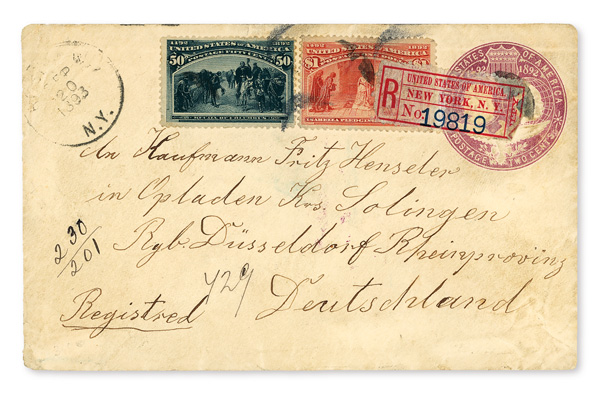 SEP
20
1893
N.Y.
1492 1892
UNITED STATES OF AMERICA
POSTAGE FIFTY CENTS
50 50
RECALL OF COLUMBUS
1492 1892
UNITED STATES OF AMERICA
$1 $1
ISABELLA PLEDGING
UNITED STATES OF AMERICA.
R NEW YORK, N.Y.
No. 19819
STATES OF AMERICA
1892
POSTAGE TWO CENTS
An Kaufmann Fritz Henseler
in Opladen Krs. Solingen
Rgb. Düsseldorf Rheinprovinz
Deutschland
230
201
429
Registred